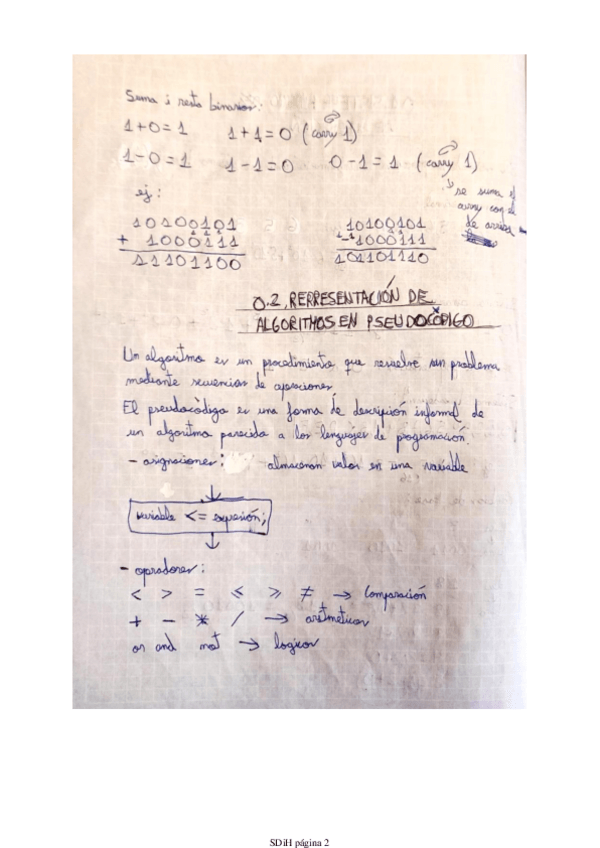 Suma i resta binarios:
1+0=1 1+1=0 (carry 1)
1-0=1 1-1=0 0-1=1 (carry 1)
ej:
↓ se suma el
carry con el
de arriba
10100101 10100101
+ 1000111 - 1000111
11101100 101101110
0.2. REPRESENTACIÓN DE
ALGORITMOS EN PSEUDOCÓDIGO
Un algoritmo es un procedimiento que resuelve un problema
mediante secuencias de operaciones
El pseudocódigo es una forma de descripción informal de
un algoritmo parecida a los lenguajes de programación.
- asignaciones: almacenan valor en una variable
variable <= expresión;
- operadores:
< > = ≤ ≥ ≠ → Comparación
+ - * / → aritméticos
or and not → logicos
SDiH página 2